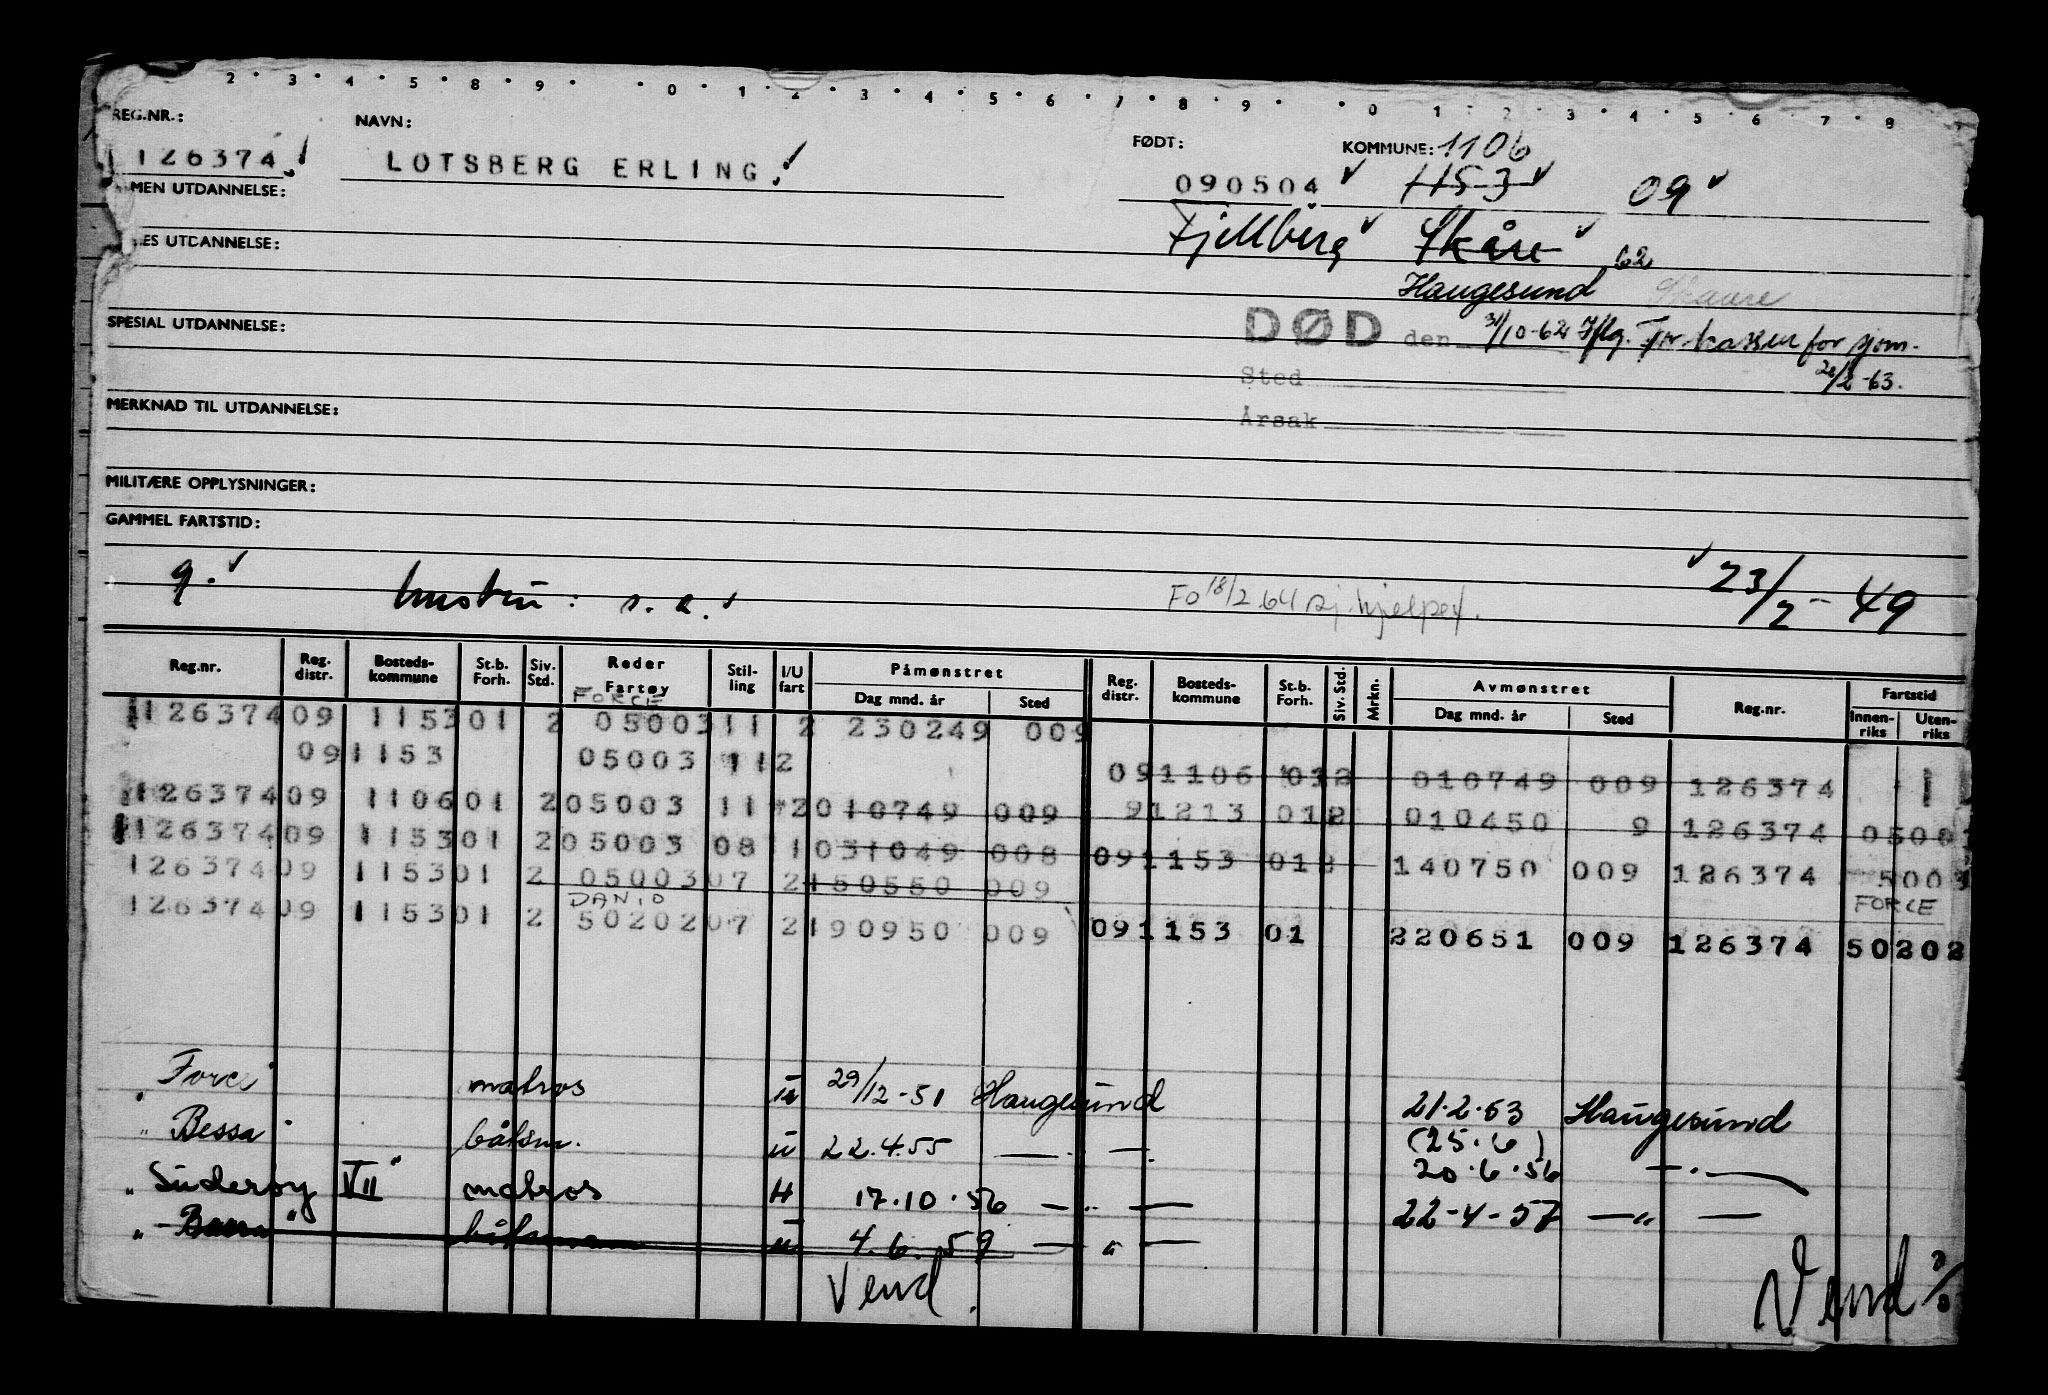 2 3 4 5 8 9 0 1 2 3 4 5 6 7 8 9 0 1 2 3 4 5 6 7 8
REG.NR.: NAVN: FØDT: KOMMUNE: 1106
126374 ! LOTSBERG ERLING ! 090504 1153 09
MEN UTDANNELSE: Fjellberg Skåre 62
ES UTDANNELSE: Haugesund Skaare
SPESIAL UTDANNELSE: DØD den 31/10-62 Iflg. Tr kassen for sjøm.
Sted 26/2-63.
MERKNAD TIL UTDANNELSE: Årsak
MILITÆRE OPPLYSNINGER:
GAMMEL FARTSTID:
g. hustru: s. a. Fo 18/2 64 sj.hjelpef. 23/2-49
Reg.nr. Reg. distr. Bosteds-kommune St.b. Forh. Siv. Std. Reder Fartøy Stil-ling I/U fart Påmønstret Reg. distr. Bosteds-kommune St.b. Forh. Siv. Std. Mrkn. Avmønstret Reg.nr. Fartstid
Dag mnd. år Sted Dag mnd. år Sted Innen-riks Uten-riks
FORCE
126374 09 1153 01 2 05003 11 2 230249 009
09 1153 05003 11 2 09 1106 01 2 010749 009 126374 1
126374 09 1106 01 2 05003 11 2 010749 009 9 1213 01 2 010450 9 126374 0500
126374 09 1153 01 2 05003 08 1 031049 008 09 1153 01 2 140750 009 126374 5003
126374 09 1153 01 2 05003 07 2 150550 009 FORCE
DANIO
126374 09 1153 01 2 50202 07 2 190950 009 09 1153 01 220651 009 126374 50202
" Force" matros u 29/12-51 Haugesund 21.2.53 Haugesund
" Bessa" båtsm. u 22.4.55 — " — (25.6) 20.6.56 — " —
" Suderøy VII" matros H 17.10.56 — " — 22-4-57 — " —
" Bessa" båtsmann u 4.6.59 — " —
Vend. Vend %